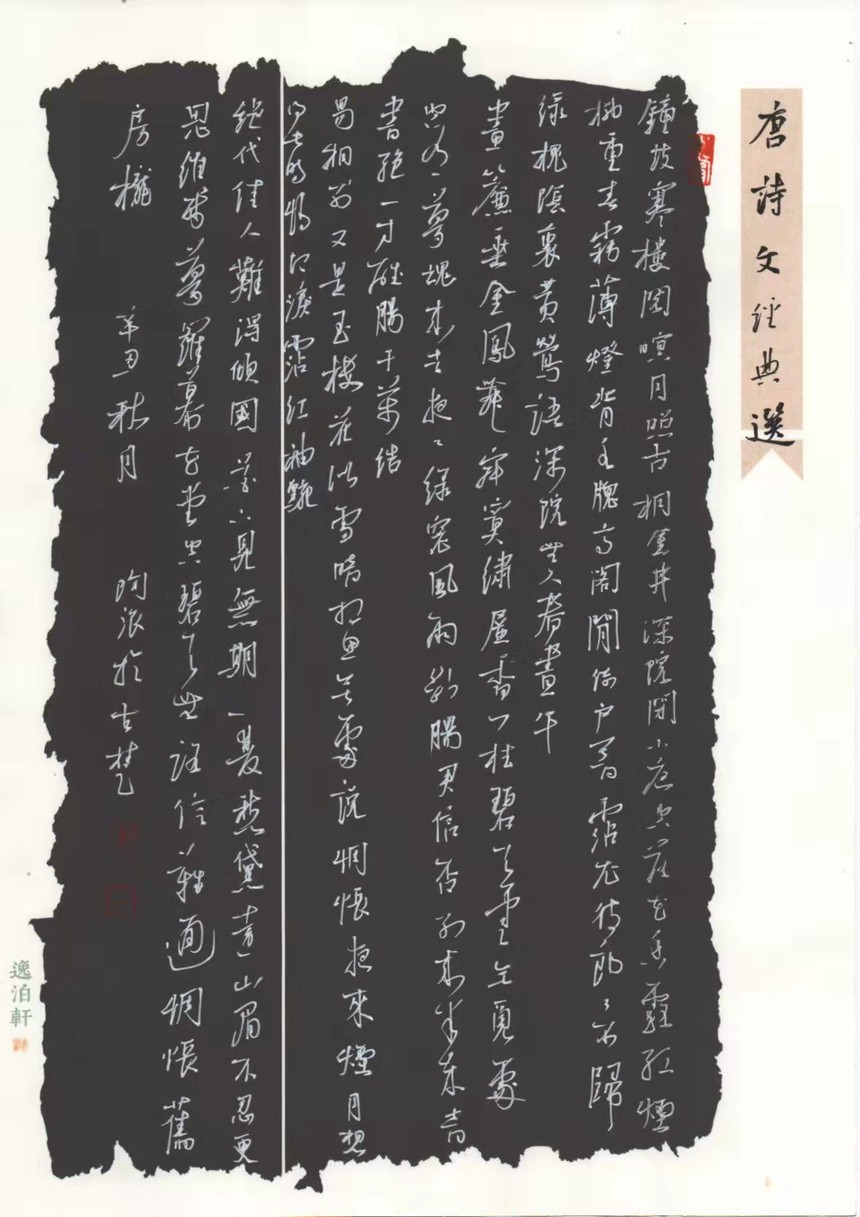 唐詩文經典選
鐘鼓寒樓閣暝月照古桐金井深院閉小庭空落花香露紅煙
柳重春霧薄燈背水牕高閣閒倚戶暗霑衣待郎々不歸
綠槐陰裏黃鶯語深院無人春晝午
畫簾垂金鳳舞寂寞繡屏香一炷碧天雲无覓處
空有夢魂來去夜々綠窓風雨斷腸君信否別來半歲音
書絕一寸離腸千萬結
易相別又是玉樓花似雪暗相思無處說惆悵夜來煙月想
得此時情切淚霑紅袖黦
絕代佳人難得傾國花下見無期一雙愁黛遠山眉不忍更
思維殘夢羅幕畫堂空碧天無路信難通惆悵舊
房櫳 辛丑秋月 於古楚
逸泊軒